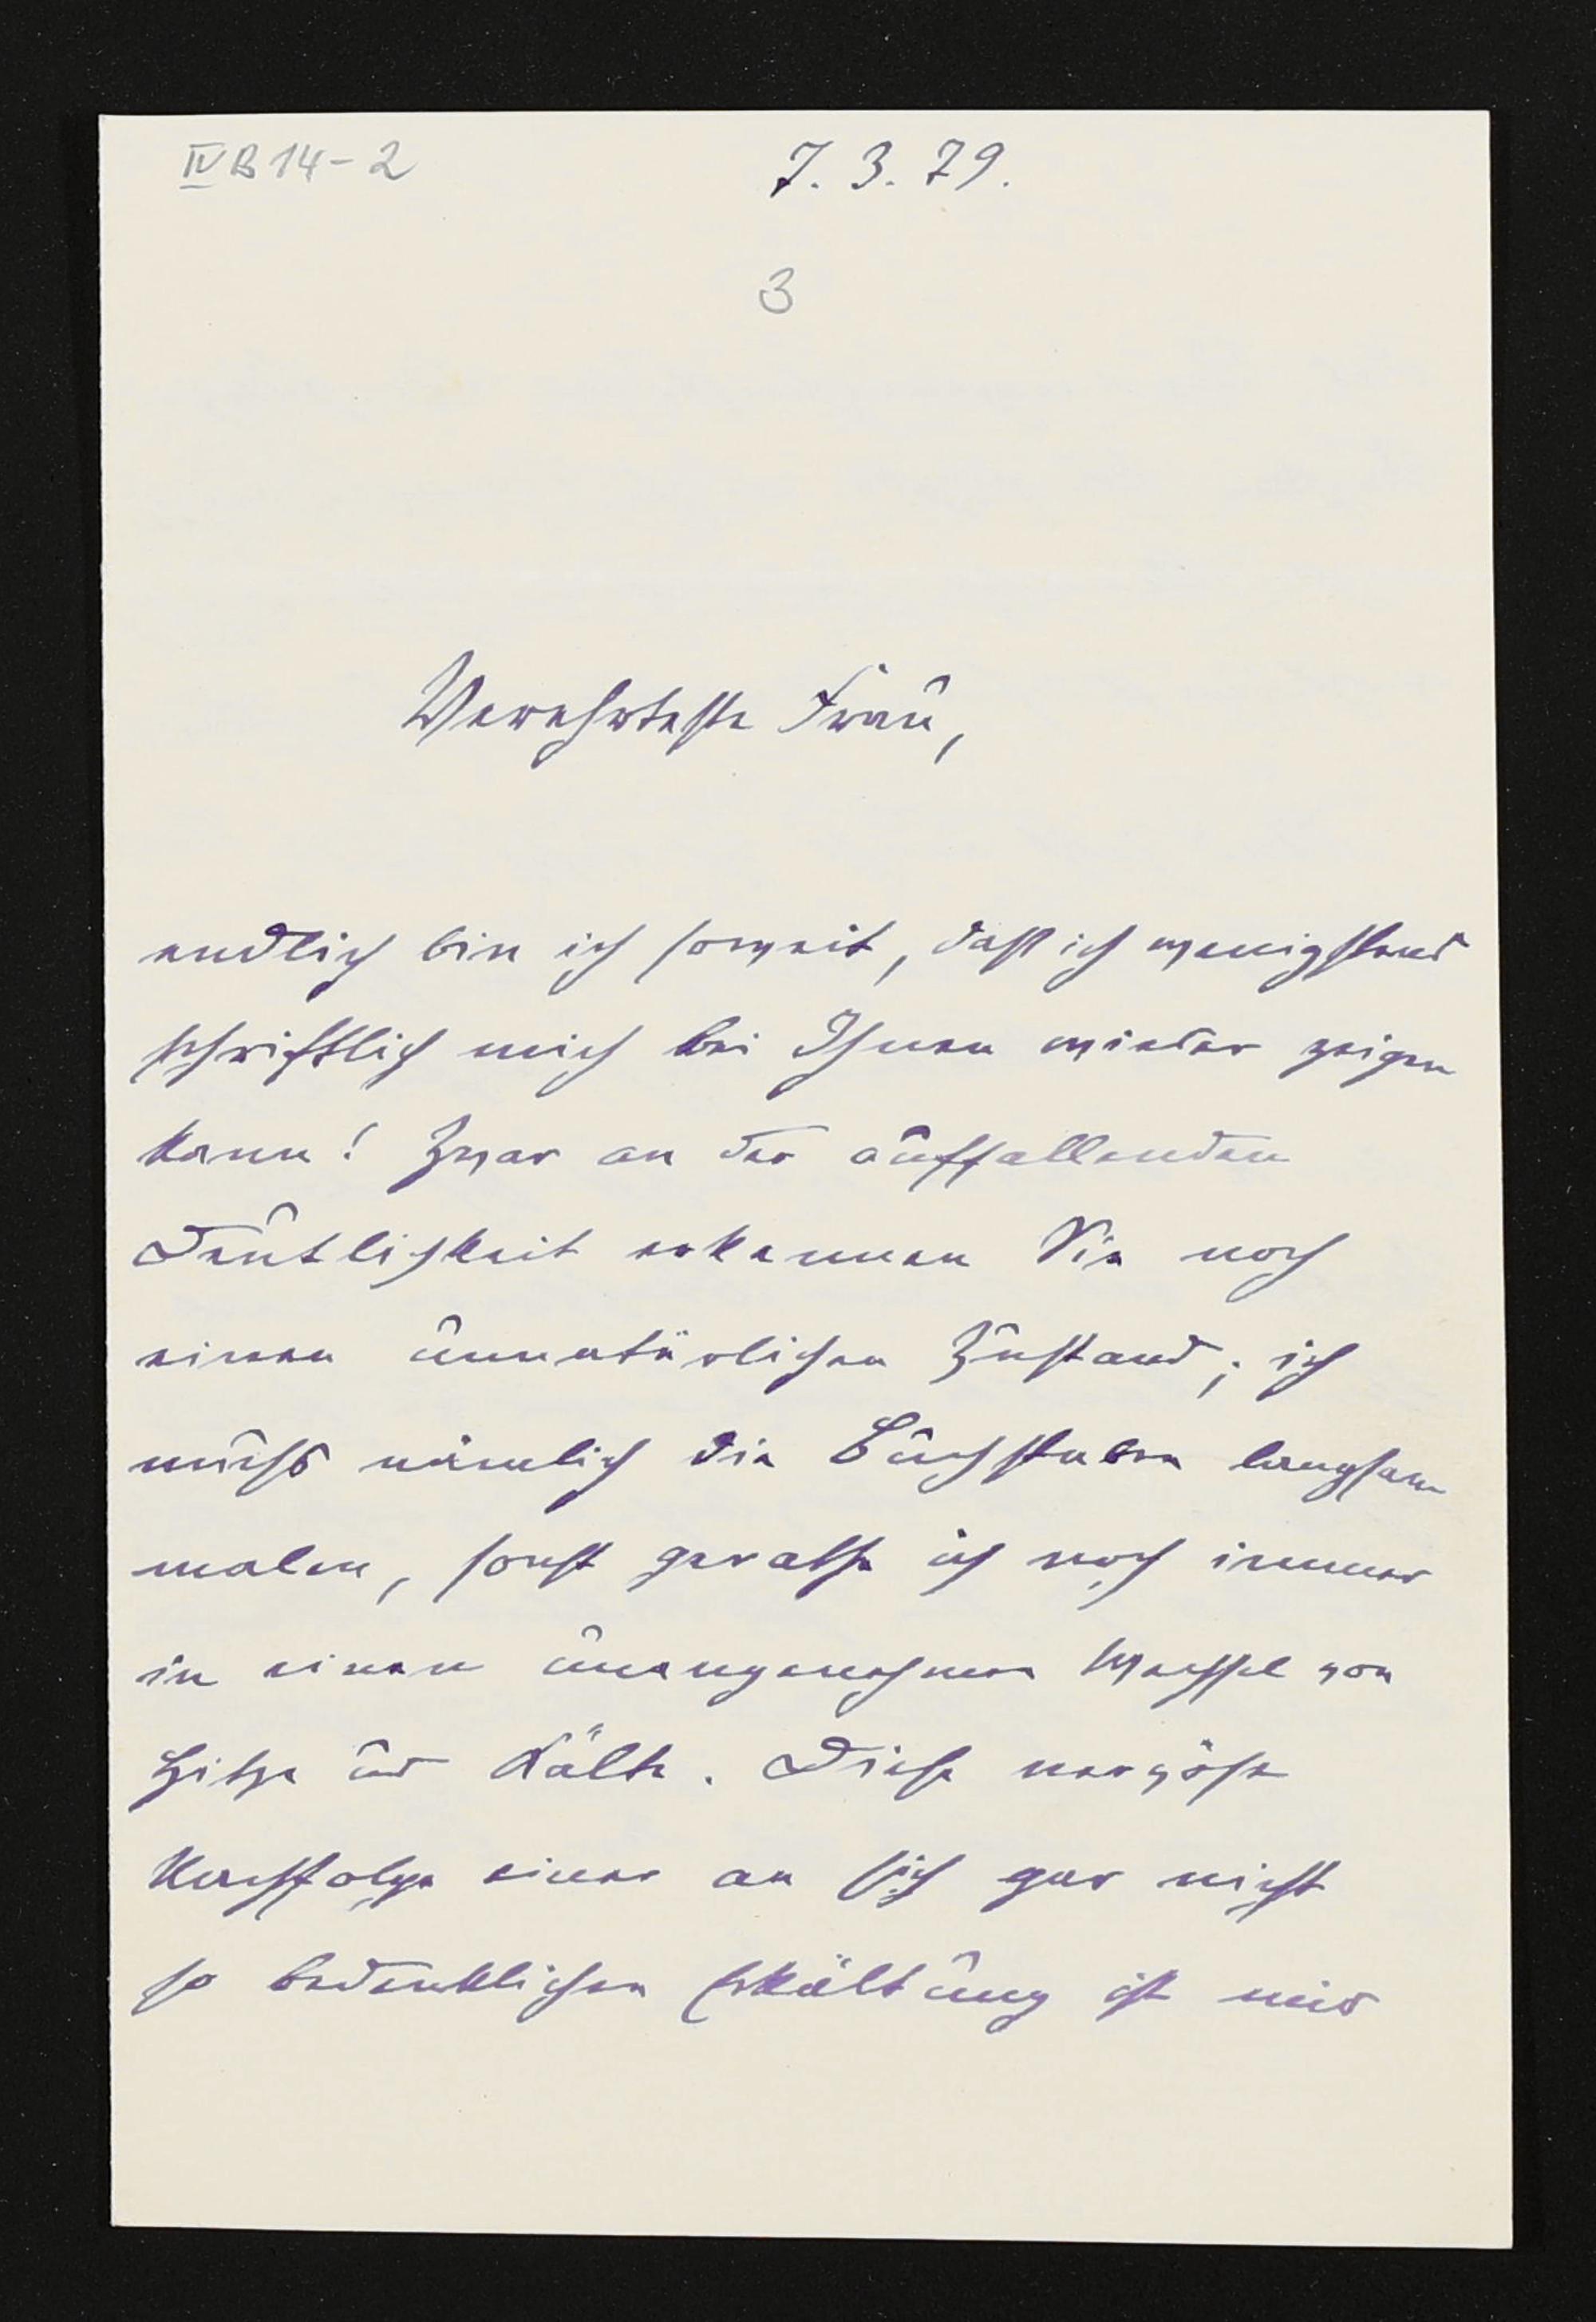 IV B 14-2
7. 3. 79.
3
Verehrteste Frau,
endlich bin ich soweit, dass ich wenigstens
schriftlich mich bei Ihnen wieder zeigen
kann! Zwar an der auffallenden
Deutlichkeit erkennen Sie noch
einen unnatürlichen Zustand; ich
muss nämlich die Buchstaben langsam
malen, sonst gerathe ich noch immer
in einen unangenehmen Wechsel von
Hitze und Kälte. Diese nervöse
Nachfolge einer an sich gar nicht
so bedenklichen Erkältung ist mir